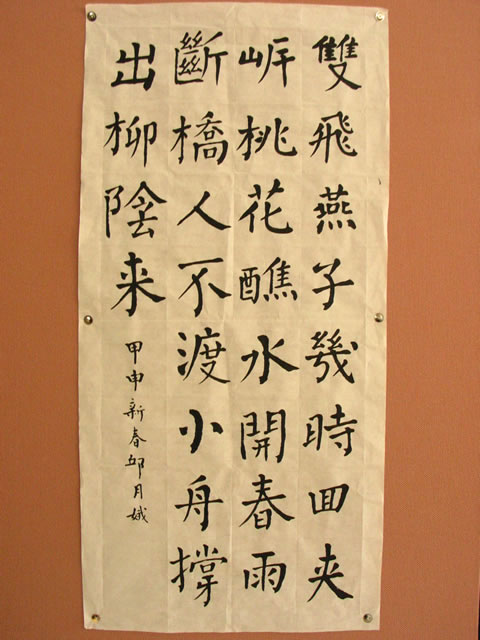 雙飛燕子幾時回夾
岸桃花醮水開春雨
斷橋人不渡小舟撐
出柳陰来
甲申新春邱月娥